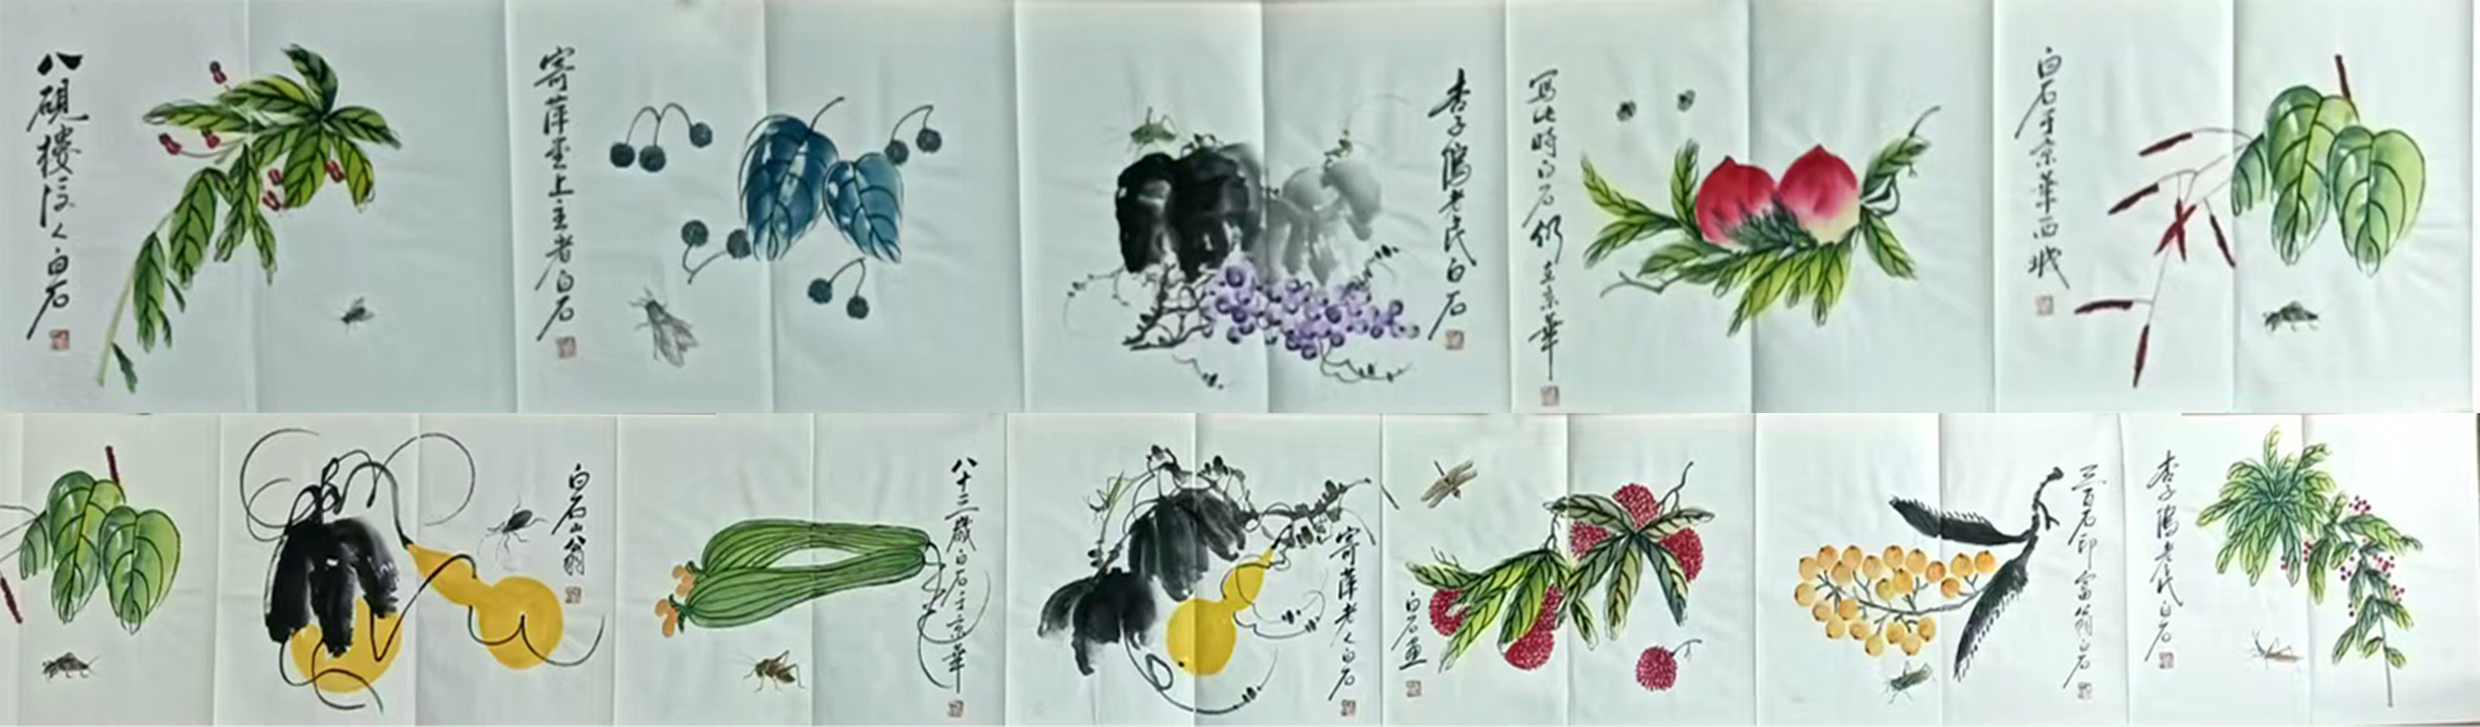 八硯樓頭人白石
寄萍堂上主者白石
杏子隖老民白石
寫此時白石仍在京華
白石于京華西城
白石山翁
八十三歲白石于京華
寄萍老人白石
白石畫
三百石印富翁白石
杏子隖老民白石